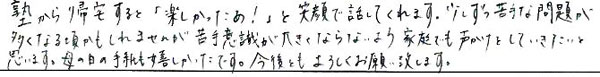 塾から帰宅すると「楽しかったぁ！」と笑顔で話してくれます。少しずつ苦手な問題が
多くなる頃かもしれませんが苦手意識が大きくならないよう家庭でも声かけをしていきたいと
思います。母の日の手紙も嬉しかったです。今後ともよろしくお願い致します。